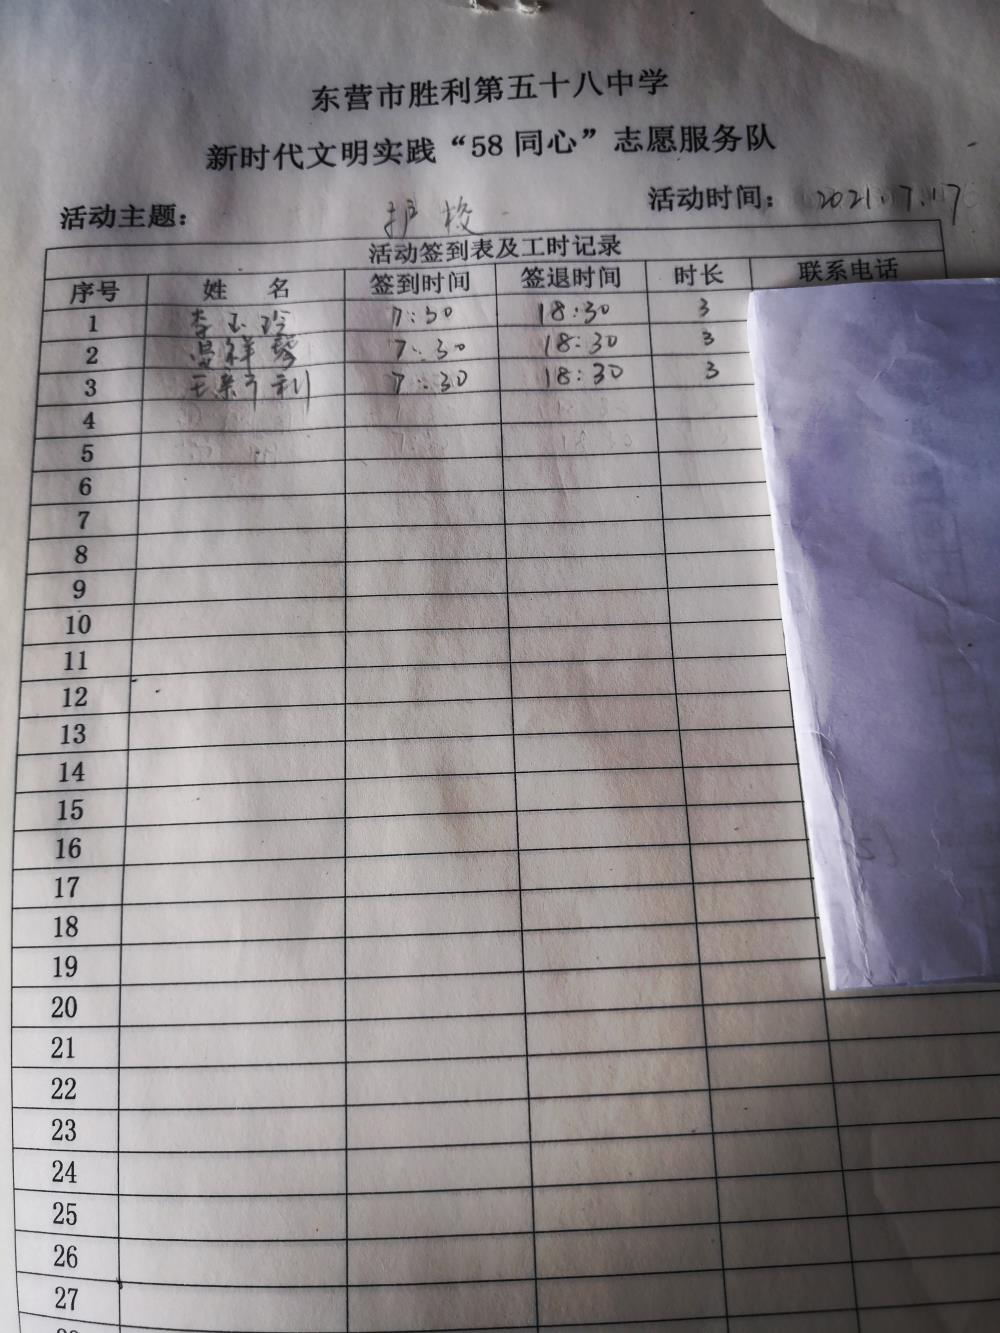 东营市胜利第五十八中学
新时代文明实践“58同心”志愿服务队
活动主题： 护校 活动时间： 2021.7.17
活动签到表及工时记录
序号 姓 名 签到时间 签退时间 时长 联系电话
1 李玉玲 7:30 18:30 3
2 7:30 18:30 3
3 7:30 18:30 3
4
5
6
7
8
9
10
11
12
13
14
15
16
17
18
19
20
21
22
23
24
25
26
27